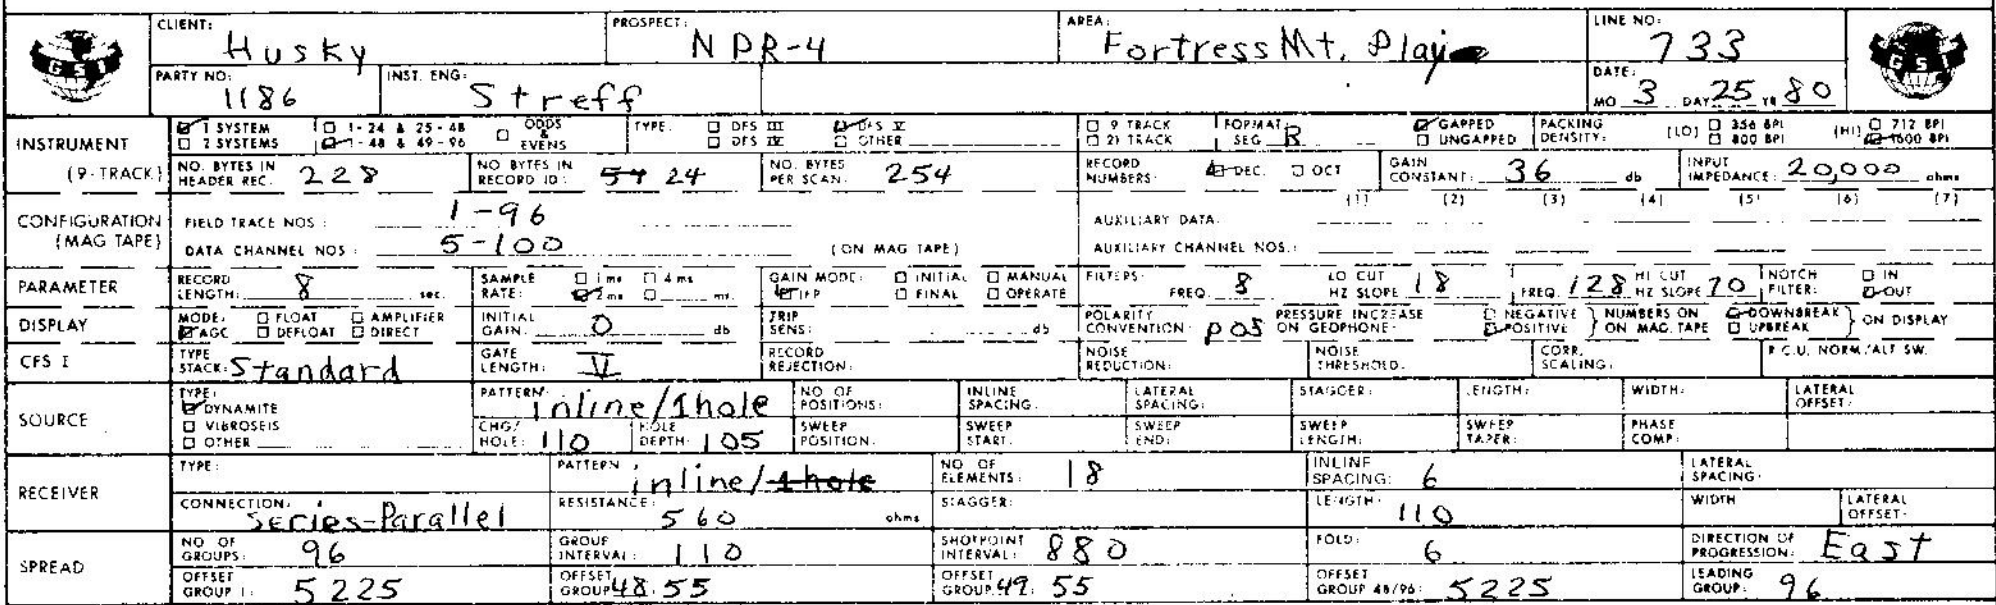 CLIENT: Husky PROSPECT: NPR-4 AREA: Fortress Mt. Play LINE NO: 733
GSI GSI
PARTY NO: 1186 INST. ENG: Streff DATE: MO 3 DAY 25 YR 80
INSTRUMENT 1 SYSTEM 1-24 & 25-48 ODDS & EVENS TYPE: DFS III DFS V 9 TRACK FORMAT: GAPPED PACKING DENSITY: (LO) 356 BPI (HI) 712 BPI
2 SYSTEMS 1-48 & 49-96 DFS IV OTHER 21 TRACK SEG B UNGAPPED 800 BPI 1600 BPI
(9-TRACK) NO. BYTES IN HEADER REC. 228 NO BYTES IN RECORD ID: 54 24 NO. BYTES PER SCAN: 254 RECORD NUMBERS: DEC. OCT GAIN CONSTANT: 36 db INPUT IMPEDANCE: 20,000 ohms
CONFIGURATION (MAG TAPE) FIELD TRACE NOS: 1-96 AUXILIARY DATA: (1) (2) (3) (4) (5) (6) (7)
DATA CHANNEL NOS: 5-100 (ON MAG TAPE) AUXILIARY CHANNEL NOS.:
PARAMETER RECORD LENGTH: 8 sec. SAMPLE RATE: 1 ms 4 ms 2 ms ms. GAIN MODE: INITIAL MANUAL IFP FINAL OPERATE FILTERS: FREQ 8 LO CUT HZ SLOPE 18 FREQ. 128 HI CUT HZ SLOPE 70 NOTCH FILTER: IN OUT
DISPLAY MODE: FLOAT AMPLIFIER AGC DEFLOAT DIRECT INITIAL GAIN: 0 db TRIP SENS: db POLARITY CONVENTION: pos PRESSURE INCREASE ON GEOPHONE: NEGATIVE POSITIVE NUMBERS ON MAG. TAPE DOWNBREAK UPBREAK ON DISPLAY
CFS I TYPE STACK: Standard GATE LENGTH: V RECORD REJECTION: NOISE REDUCTION: NOISE THRESHOLD: CORR. SCALING: R.C.U. NORM./ALT SW.
SOURCE TYPE: DYNAMITE VIBROSEIS OTHER PATTERN: inline/1hole NO OF POSITIONS: INLINE SPACING: LATERAL SPACING: STAGGER: LENGTH: WIDTH: LATERAL OFFSET:
CHG/HOLE: 110 HOLE DEPTH: 105 SWEEP POSITION: SWEEP START: SWEEP END: SWEEP LENGTH: SWEEP TAPER: PHASE COMP:
RECEIVER TYPE: PATTERN: inline/1 hole NO OF ELEMENTS: 18 INLINE SPACING: 6 LATERAL SPACING:
CONNECTION: Series-Parallel RESISTANCE: 560 ohms STAGGER: LENGTH: 110 WIDTH LATERAL OFFSET:
SPREAD NO OF GROUPS: 96 GROUP INTERVAL: 110 SHOTPOINT INTERVAL: 880 FOLD: 6 DIRECTION OF PROGRESSION: East
OFFSET GROUP 1: 5225 OFFSET GROUP 48: 55 OFFSET GROUP 49: 55 OFFSET GROUP 48/96: 5225 LEADING GROUP: 96